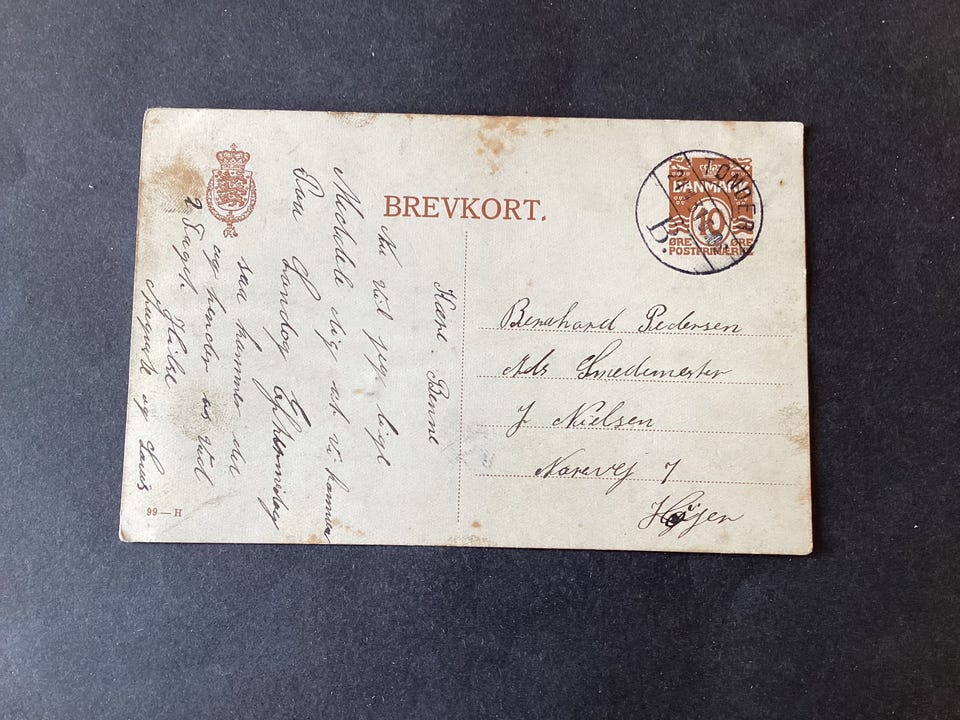 BREVKORT.
TØNDER
B.
DANMARK
10
ØRE ØRE
POSTFRIMÆRKE
Bernhard Pedersen
Ads Smedemester
J Nielsen
Nørevej 7
Højer
Kære Benne
Nu vil jeg lige
Meddele dig at vi kommer
Søndag Eftermidag
saa kommer du
og henter os ved
2 Toget.
Hilse
Auguste og Louis
99—H